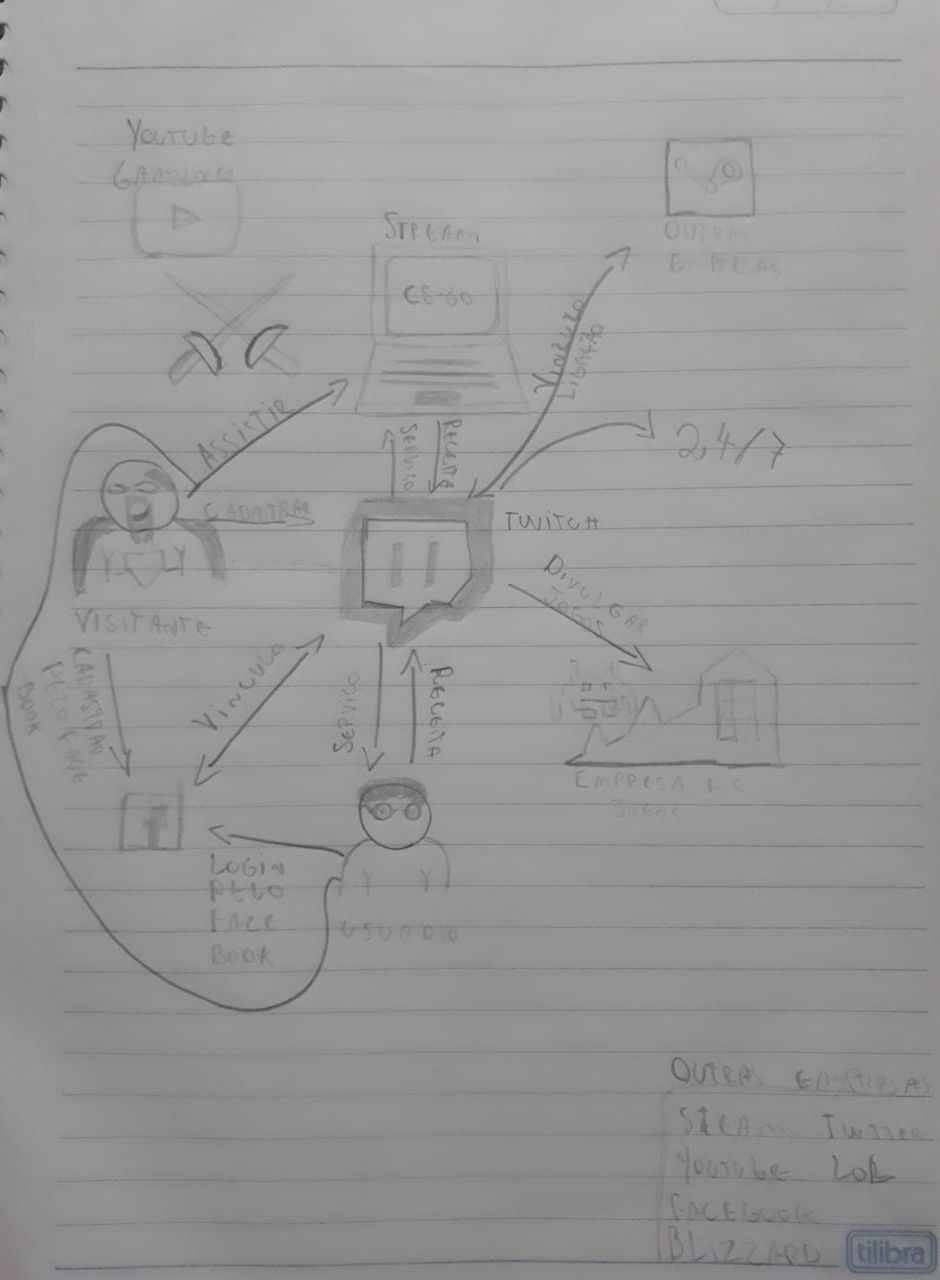 YOUTUBE
GAMING
STREAM
CS-GO
OUTRAS
EMPRESAS
VINCULO
LIGAÇÃO
ASSISTIR
SERVIÇO
RECEITA
24/7
CADATRAR
TWITCH
DIVULGAR
JOGOS
VISITANTE
CADASTRAR
PELO FACE
BOOK
VINCULO
SERVIÇO
RECEITA
EMPRESA DE
JOGOS
LOGIN
PELO
FACE
BOOK
USUARIO
OUTRAS EMPRESAS
STEAM TWITTER
YOUTUBE LOL
FACEBOOK
BLIZZARD
tilibra